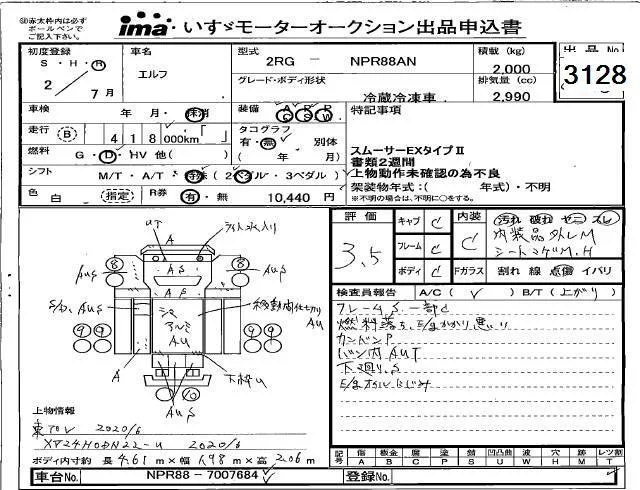 ⑱赤太枠内は必ず
ボールペンで
ご記入下さい。
ima いすゞモーターオークション出品申込書
初度登録 S・H・Ⓡ 2年 7月
車名 エルフ
型式 2RG － NPR88AN
積載 (kg) 2,000
出品No. 3128
グレード・ボディ形状 冷蔵冷凍車
排気量 (cc) 2,990
車検 年 月・抹消
装備 A C P S P W
特記事項
走行 B 418000km
タコグラフ 有・無 別体 ( 年 月)
スムーサーEXタイプⅡ
書類2週間
上物動作未確認の為不良
架装物年式：( 年式)・不明
※不明の場合は、不明に○をする。
燃料 G・D・HV 他( )
シフト M/T・A/T・特殊 (2ペダル・3ペダル)
色 白 (指定)
R券 有・無 10,440 円
評価 3.5
キャブ C
フレーム C
ボディ C
内装 C
Fガラス
汚れ 破れ コゲ スレ
内装品外レM
シートコゲM.H
割れ 線 点傷 イバリ
検査員報告 A/C( ✓ ) B/T(上がり)
フレームS 一部C
燃料落ち、E/gかかり悪い
カンバンP
バン内AUT
下廻りS
E/gオイルにじみ
UT
ライト水入り
A
AS
8
AUS
8
AUS
S/D、AUS
アルミ
AU
移動間仕切り
AU
99
99
A
下枠U
10
AUS
上物情報
東プレ 2020/6
XV24HODN22-U 2020/6
ボディ内寸約 長 4.61 m×幅 1.98 m×高 2.06 m
記号 傷 A 板金 B 腐 C 塗 P 錆 S 凹凸曲 U 波 W 穴 H 跡 M レツ割 T
車台No. NPR88 － 7007684
登録No.